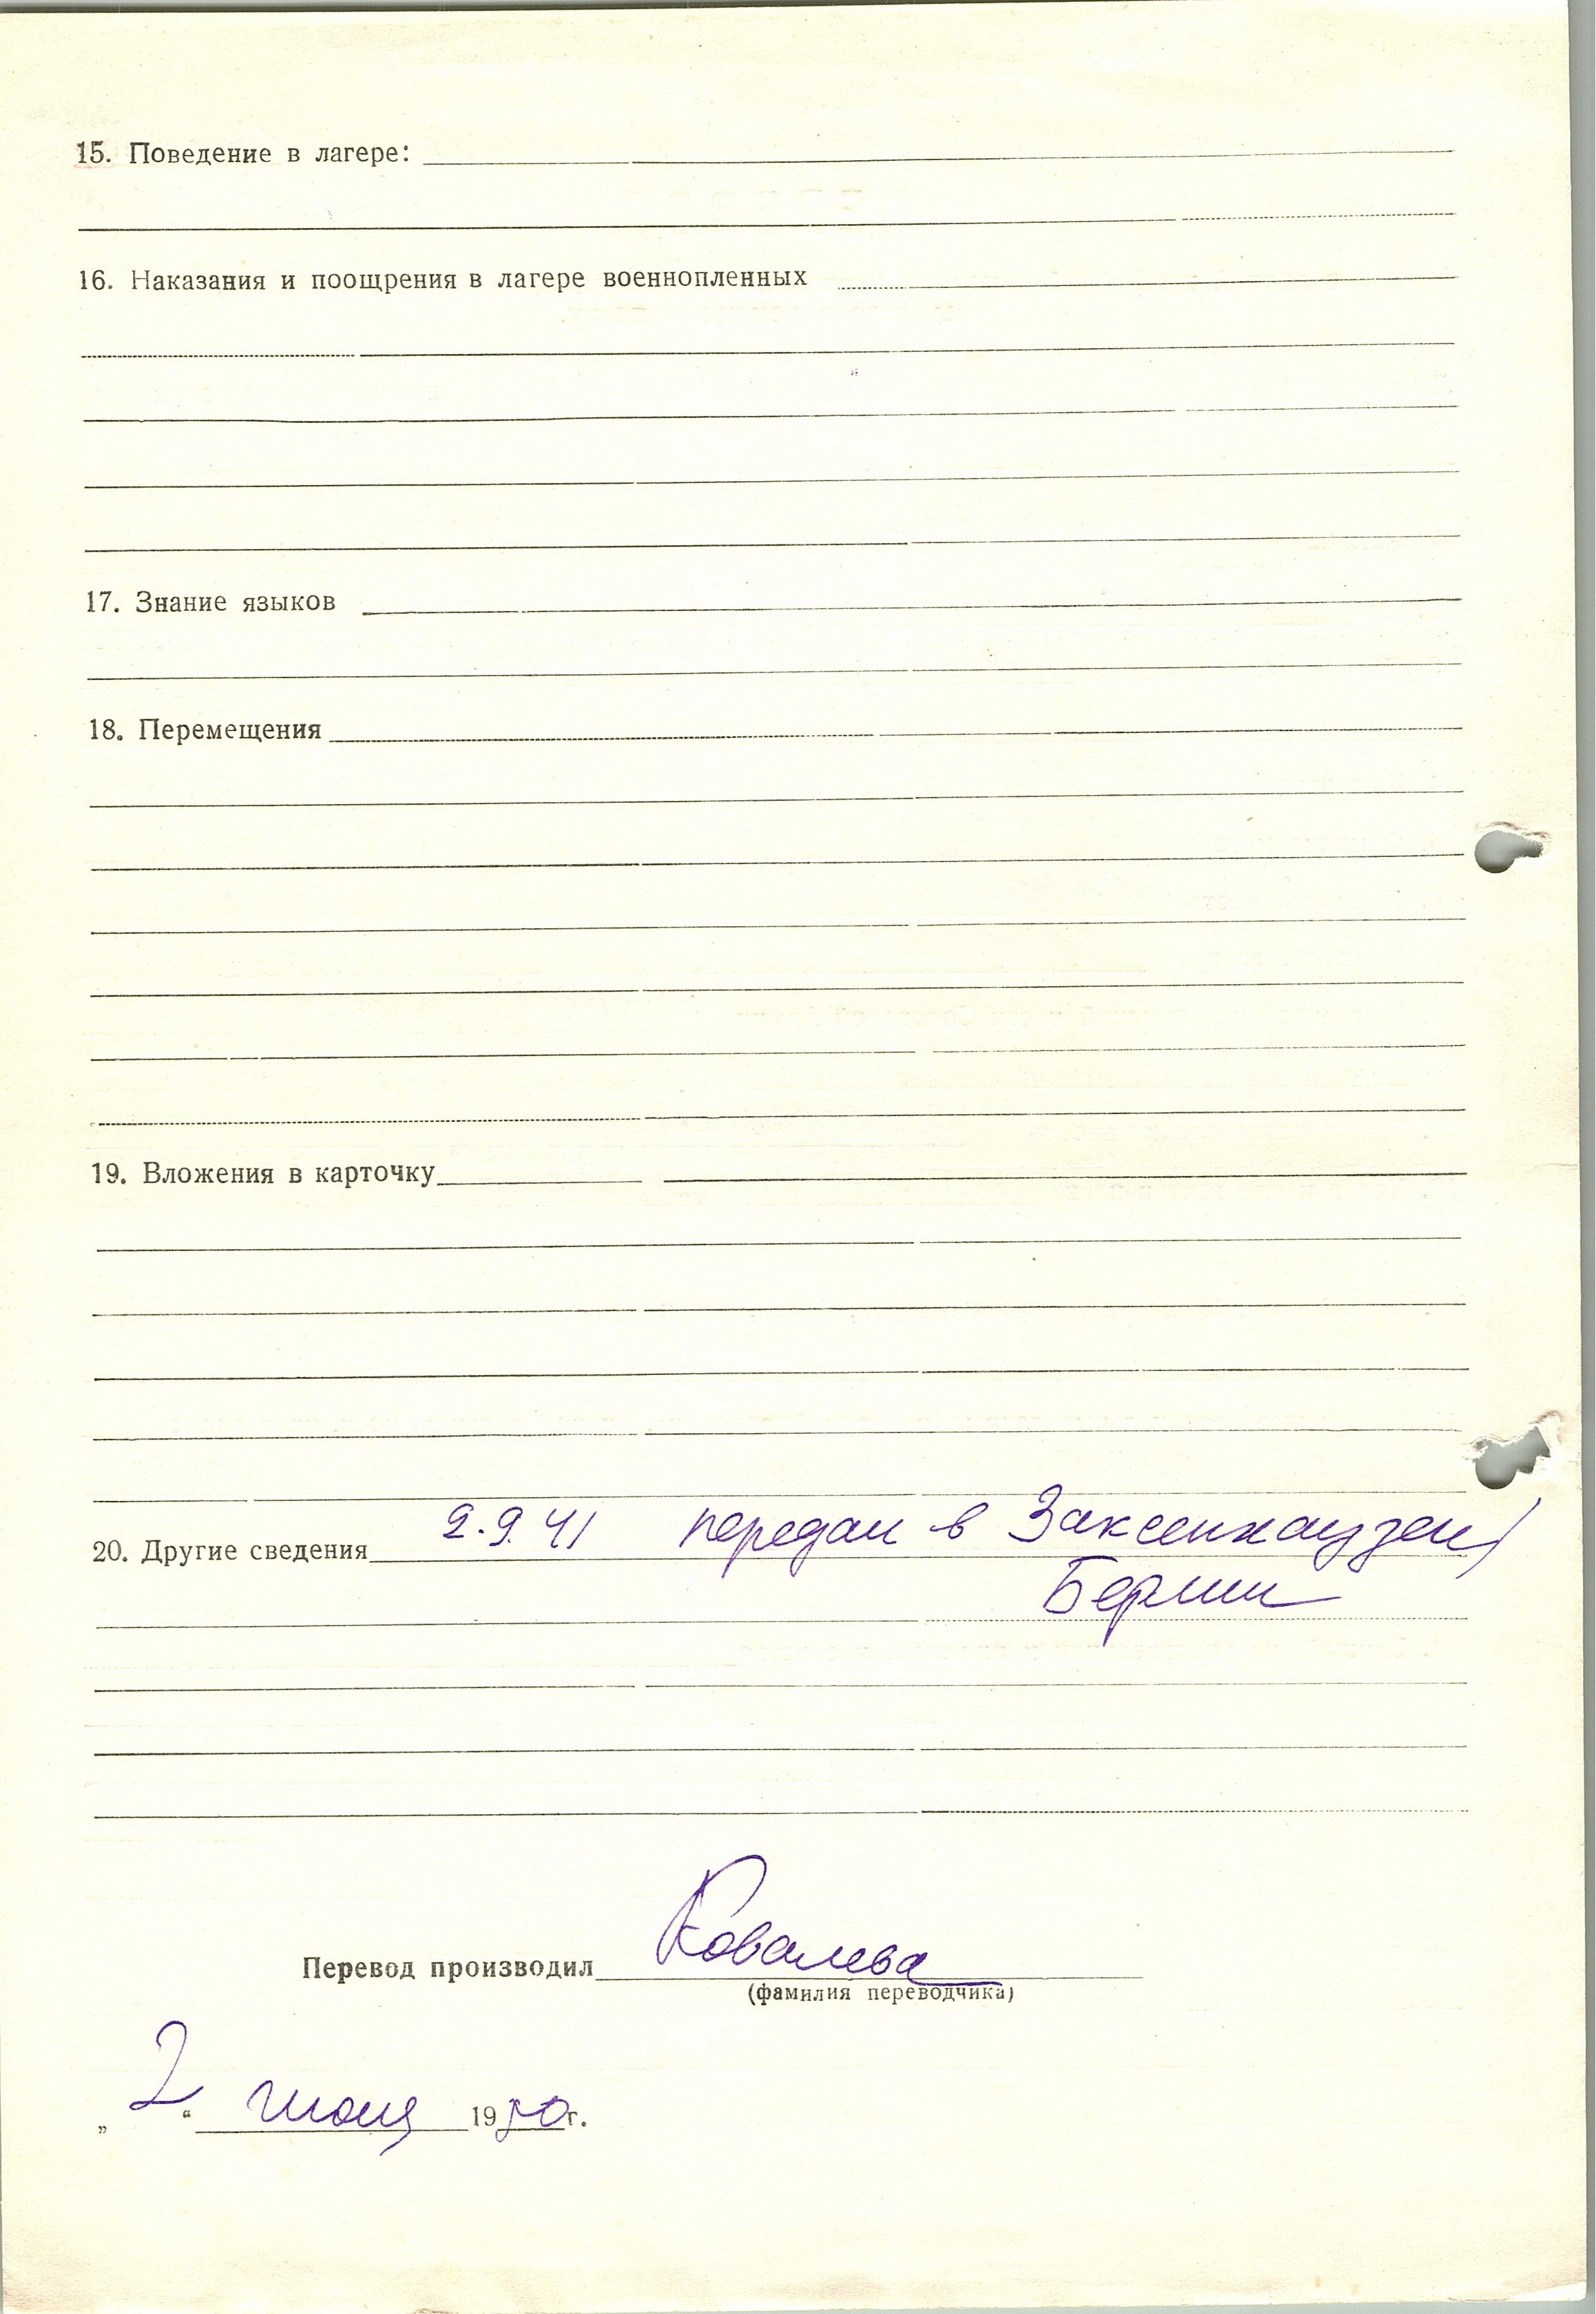 15. Поведение в лагере:
16. Наказания и поощрения в лагере военнопленных
17. Знание языков
18. Перемещения
19. Вложения в карточку
20. Другие сведения 2.9.41 передан в Заксенхаузен/
Берлин
Перевод производил Ковалева
(фамилия переводчика)
„ 2 “ июня 1950г.